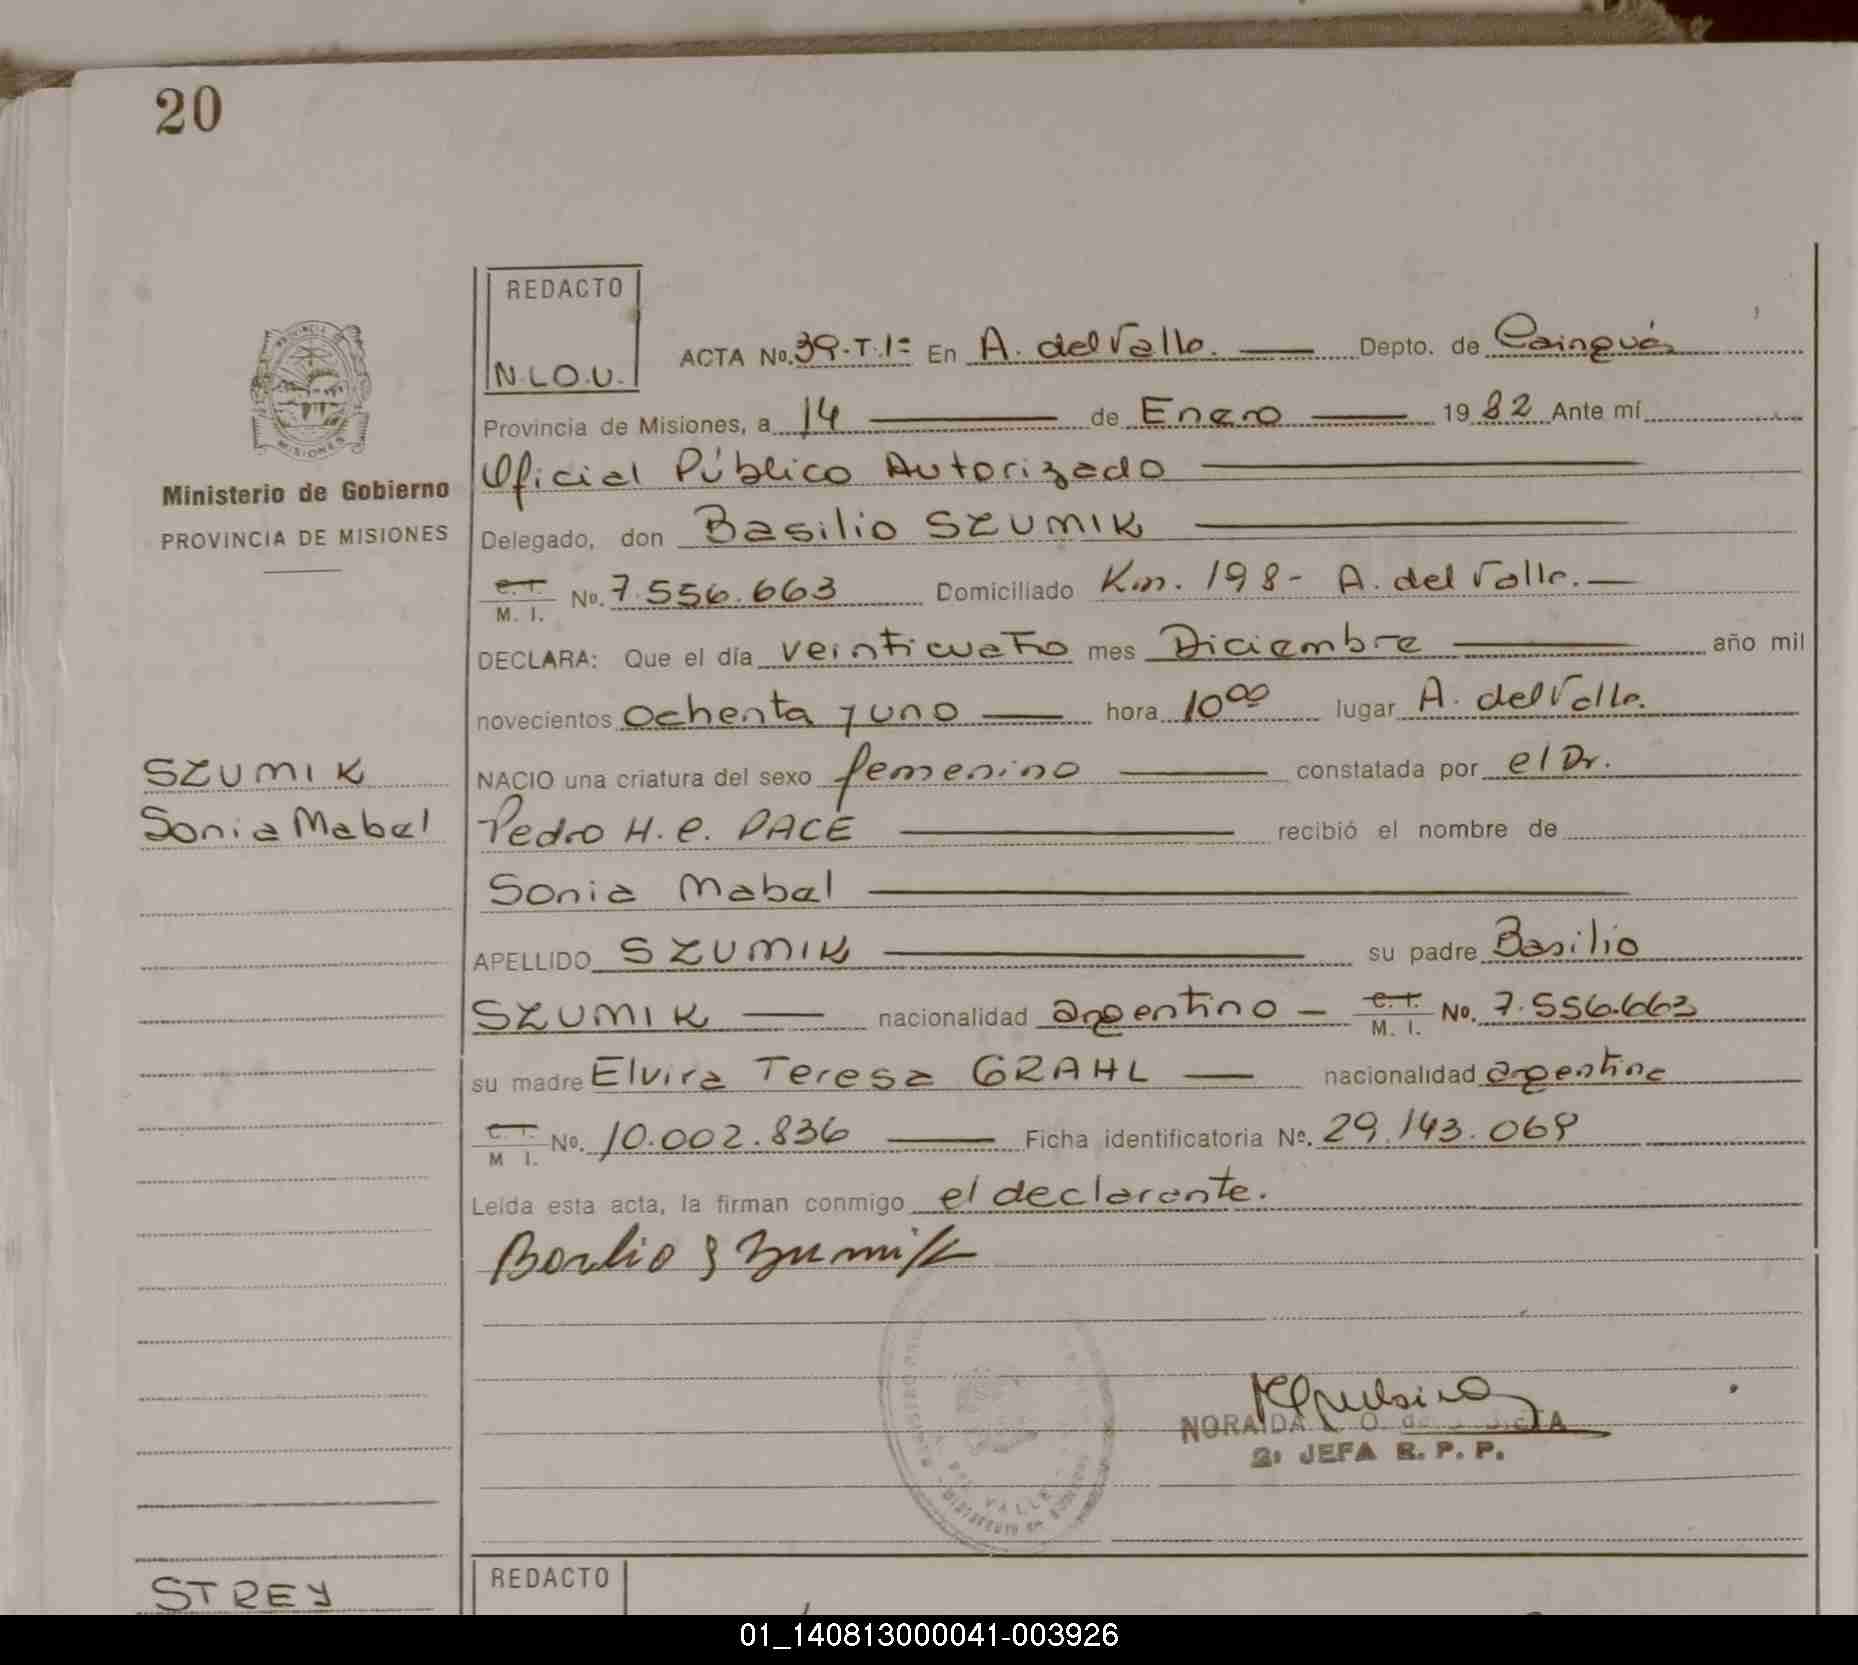 20
REDACTO
N.L.O.U.
ACTA No. 39-T.1º En A. del Valle. Depto. de Cainguás
PROVINCIA
MISIONES
Provincia de Misiones, a 14 de Enero 1982 Ante mí
Ministerio de Gobierno
Oficial Público Autorizado
PROVINCIA DE MISIONES
Delegado, don Basilio SZUMIK
C.I. M. I. No. 7.556.663 Domiciliado Km. 198- A. del Valle.
DECLARA: Que el día veinticuatro mes Diciembre año mil
novecientos ochenta y uno hora 10⁰⁰ lugar A. del Valle.
SZUMIK
NACIO una criatura del sexo femenino constatada por el Dr.
Sonia Mabel
Pedro H. C. PACE recibió el nombre de
Sonia Mabel
APELLIDO SZUMIK su padre Basilio
SZUMIK nacionalidad argentino C.I. M. I. No. 7.556.663
su madre Elvira Teresa GRAHL nacionalidad argentina
C.I. M I. No. 10.002.836 Ficha identificatoria No. 29.143.069
Leída esta acta, la firman conmigo el declarante.
Basilio Szumik
NORAIDA L. O. de
2ª JEFA R. P. P.
VALLE
REDACTO
STREY
01_140813000041-003926